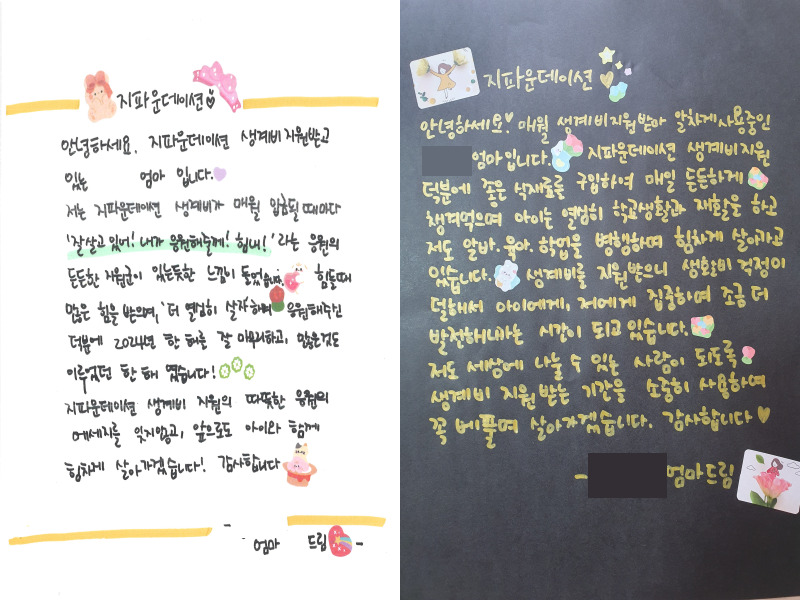 지파운데이션♡
안녕하세요. 지파운데이션 생계비 지원받고
있는 엄마 입니다.
저는 지파운데이션 생계비가 매월 입금될 때마다
'잘살고 있어! 내가 응원해줄게! 힘내!' 라는 응원의
든든한 지원군이 있는듯한 느낌이 들었습니다. 힘들때
많은 힘을 받으며, '더 열심히 살자' 하며 응원해주신
덕분에 2024년 한 해를 잘 마무리하고, 많은것도
이루었던 한 해 였습니다!
지파운데이션 생계비 지원의 따뜻한 응원의
메세지를 잊지않고, 앞으로도 아이와 함께
힘차게 살아가겠습니다! 감사합니다
- 엄마 드림 -
지파운데이션♡
안녕하세요♡ 매월 생계비지원받아 알차게 사용중인
엄마입니다. 지파운데이션 생계비지원
덕분에 좋은 식재료를 구입하여 매일 든든하게
챙겨먹으며 아이는 열심히 학교생활과 재활을 하고
저도 알바. 육아. 학업을 병행하며 힘차게 살아가고
있습니다. 생계비를 지원받으니 생활비 걱정이
덜해서 아이에게, 저에게 집중하며 조금 더
발전해나가는 시간이 되고 있습니다.
저도 세상에 나눌 수 있는 사람이 되도록
생계비 지원 받는 기간을 소중히 사용하여
꼭 베풀며 살아가겠습니다. 감사합니다♥
- 엄마드림